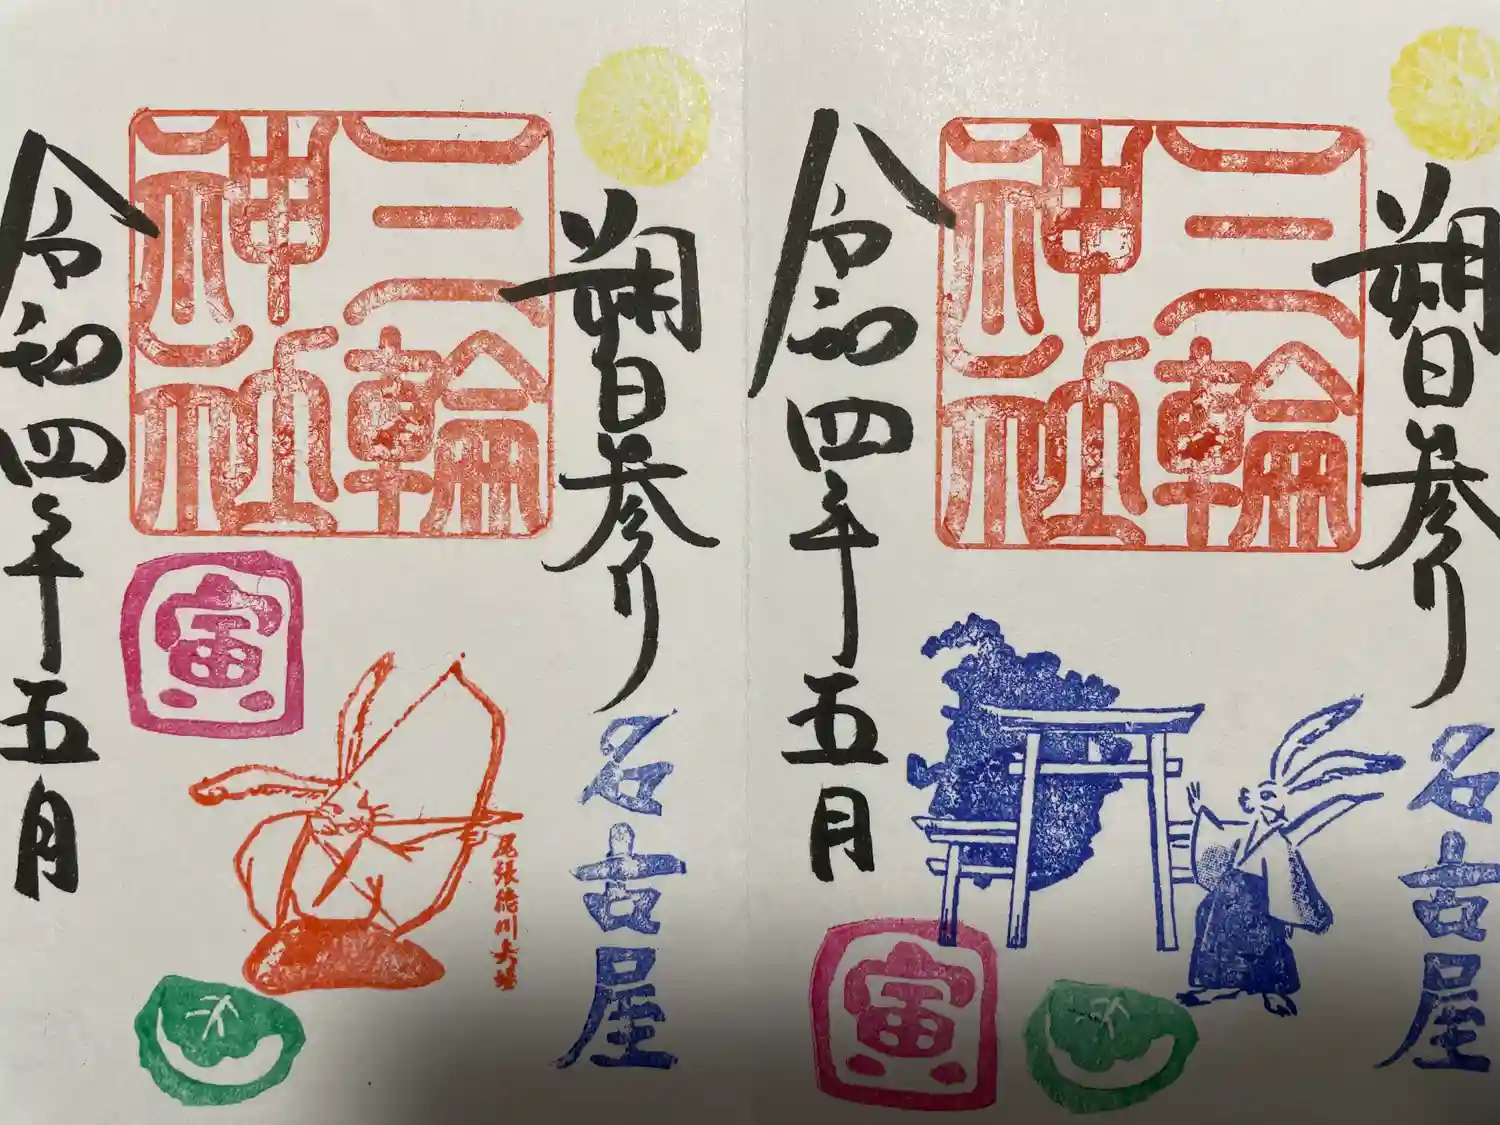 朔日参り
名古屋
三輪
神社
寅
令和四年五月
朔日参り
名古屋
三輪
神社
尾張徳川矢場
寅
令和四年五月